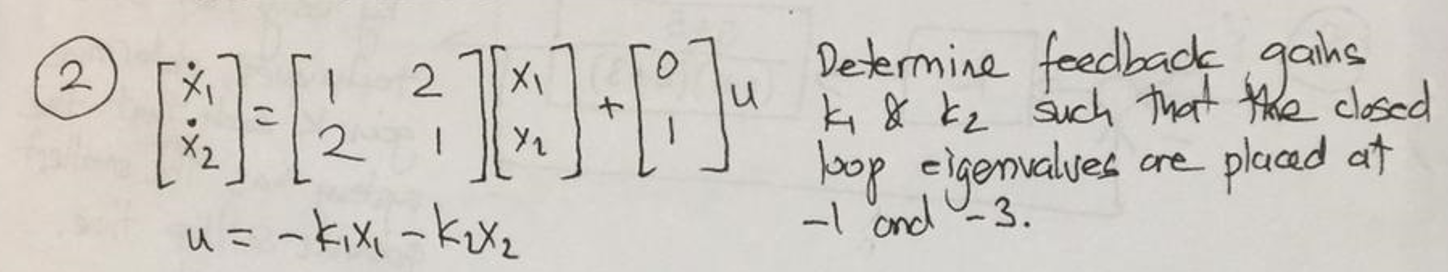 ② [ẋ₁ ẋ₂] = [1 2; 2 1] [x₁ x₂] + [0 1] u
u = -k₁x₁ - k₂x₂
Determine feedback gains
k₁ & k₂ such that the closed
loop eigenvalues are placed at
-1 and -3.